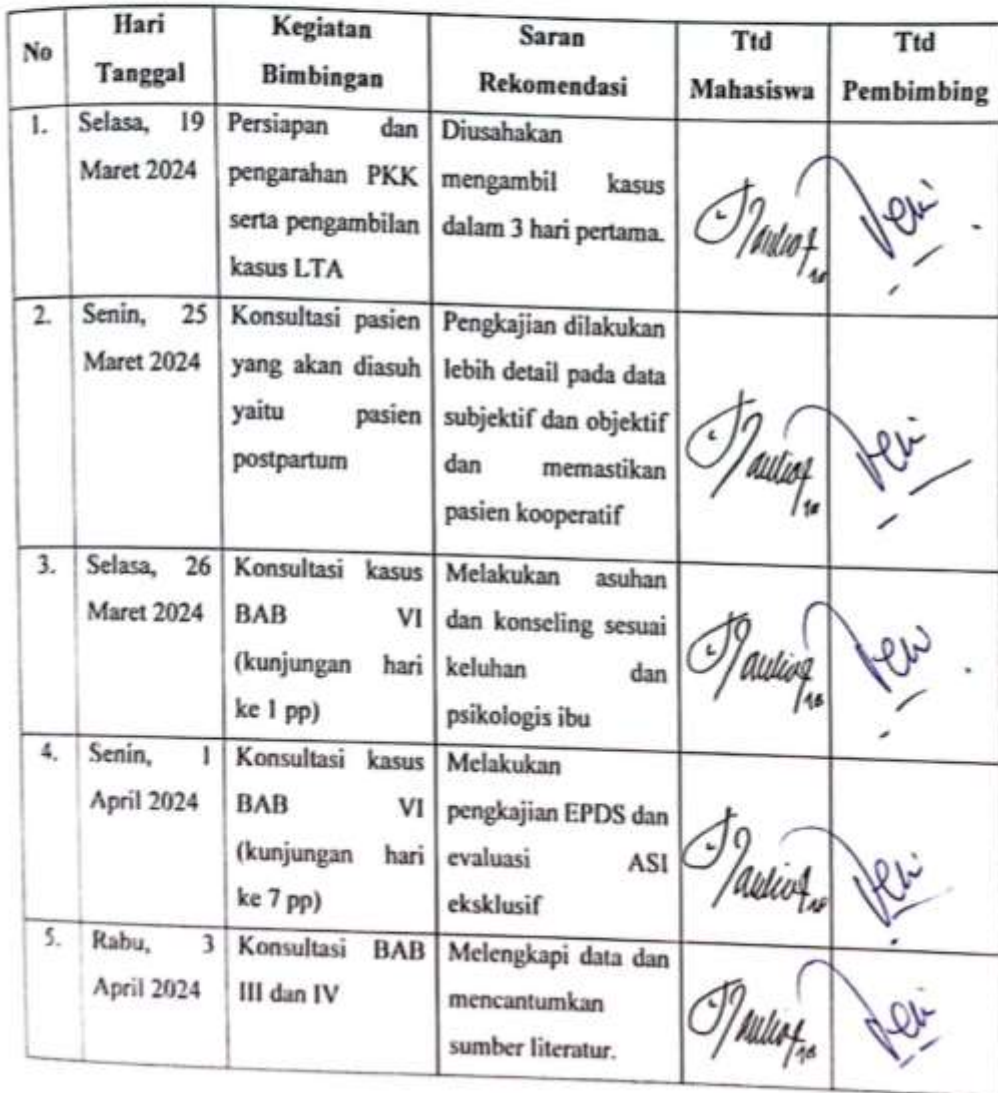 No
Hari
Tanggal
Kegiatan
Bimbingan
Saran
Rekomendasi
Ttd
Mahasiswa
Ttd
Pembimbing
1.
Selasa, 19
Maret 2024
Persiapan dan
pengarahan PKK
serta pengambilan
kasus LTA
Diusahakan
mengambil kasus
dalam 3 hari pertama.
2.
Senin, 25
Maret 2024
Konsultasi pasien
yang akan diasuh
yaitu pasien
postpartum
Pengkajian dilakukan
lebih detail pada data
subjektif dan objektif
dan memastikan
pasien kooperatif
3.
Selasa, 26
Maret 2024
Konsultasi kasus
BAB VI
(kunjungan hari
ke 1 pp)
Melakukan asuhan
dan konseling sesuai
keluhan dan
psikologis ibu
4.
Senin, 1
April 2024
Konsultasi kasus
BAB VI
(kunjungan hari
ke 7 pp)
Melakukan
pengkajian EPDS dan
evaluasi ASI
eksklusif
5.
Rabu, 3
April 2024
Konsultasi BAB
III dan IV
Melengkapi data dan
mencantumkan
sumber literatur.